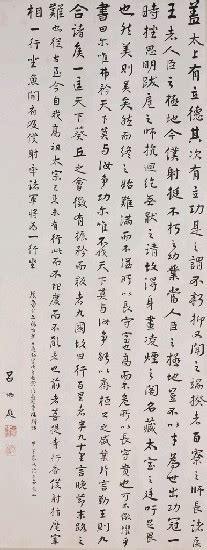 蓋太上有立功是之謂不朽抑又聞之端揆者百寮之師長諸侯
王者人臣之極地今僕射挺不朽之功業當人臣之極地豈不以才為世出功冠一
時挫思明跋扈之師抗回紇無厭之請故得身畫凌煙之閣名藏太室之廷吁足畏
也然美則美矣然而終之始難滿而不溢所以長守富也高而不危所以長守貴也可不儆懼乎
書曰爾唯弗矜天下莫與汝爭功爾唯不伐天下莫與汝爭能以齊桓公之盛業片言勤王則九
合諸侯一匡天下葵丘之會微有振矜而叛者九國故曰行百里者半九十里言晚節末路之
難也從古至今自我高祖太宗已來未有行此而不理廢而不亂者也前者菩提寺行香僕射指麾宰
相一行坐魚開府及僕射率諸軍將為一行坐